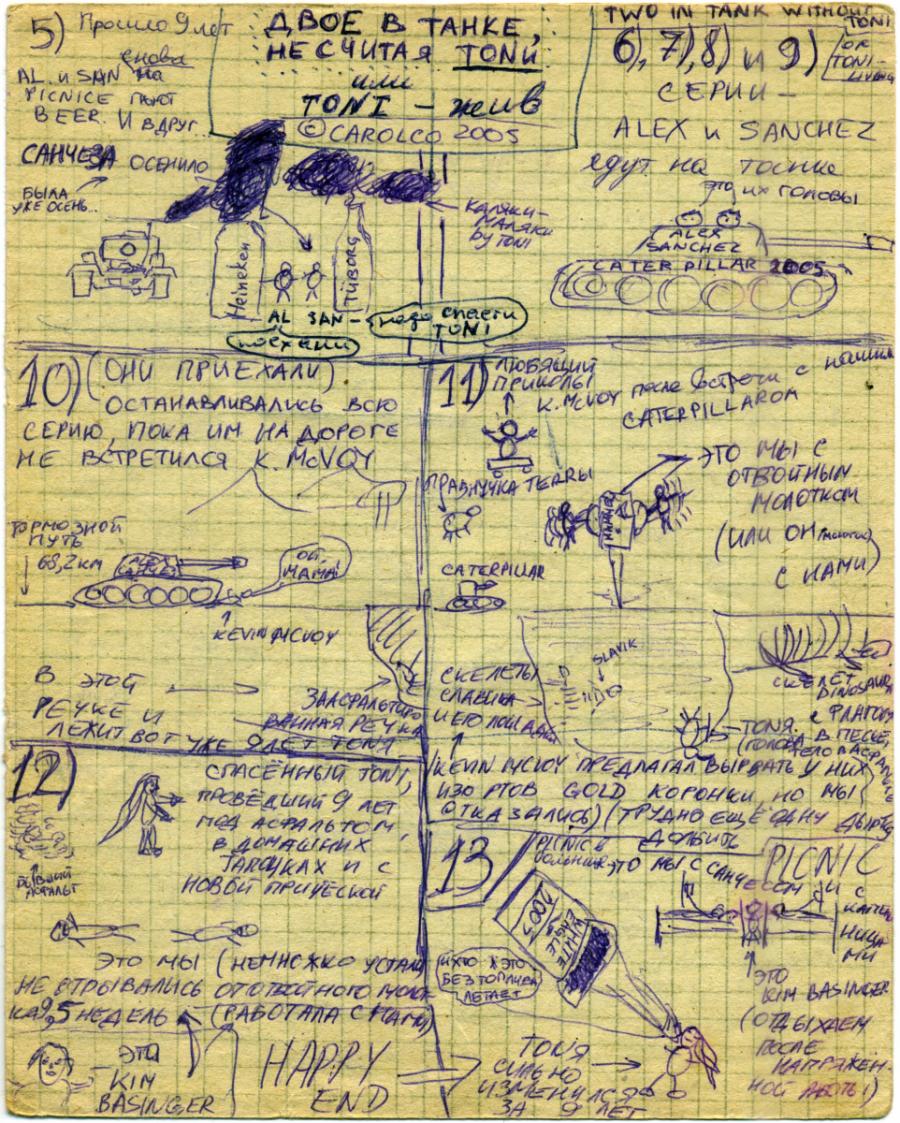 5) Прошло 9 лет
снова
AL. и SAN на
PICNICE пьют
BEER. И ВДРУГ
САНЧЕЗА ОСЕНИЛО
БЫЛА
УЖЕ ОСЕНЬ..
ДВОЕ В ТАНКЕ,
НЕ СЧИТАЯ TONИ
или
TONI - жив
© CAROLCO 2005
КАЛЯКИ-
МАЛЯКИ
by TONI
Heineken
TUBORG
AL SAN
надо спасти
TONI
поехали
TWO IN TANK WITHOUT
TONI
OR
TONI-
LIVING
6), 7), 8) и 9)
СЕРИИ -
ALEX и SANCHEZ
едут на тоснке
это их головы
ALEX
SANCHEZ
CATERPILLAR 2005
10) (ОНИ ПРИЕХАЛИ)
ОСТАНАВЛИВАЛИСЬ ВСЮ
СЕРИЮ, ПОКА ИМ НА ДОРОГЕ
НЕ ВСТРЕТИЛСЯ K. McVOY
ТОРМОЗНОЙ
ПУТЬ
68,2 КМ
ОЙ
МАМА!
KEVIN McVOY
В ЭТОЙ
РЕЧКЕ И
ЛЕЖИТ ВОТ УЖЕ 9 ЛЕТ TONЯ
ЗААСФАЛЬТИРО-
ВАННАЯ РЕЧКА
11) ЛЮБЯЩИЙ
ПРИКОЛЫ
K. McVOY после встречи с нашим
CATERPILLAROM
ПРАВНУЧКА TERRЫ
ЭТО МЫ С
ОТБОЙНЫМ
МОЛОТКОМ
(ИЛИ ОН
С НАМИ)
CATERPILLAR
СКЕЛЕТЫ
СЛАВИКА
И ЕГО ЛОШАДКИ
SLAVIK
СКЕЛЕТ
DINOSAURA
TONЯ
(ГОЛОВА В ПЕСКЕ,
KEVIN McVOY ПРЕДЛАГАЛ ВЫРВАТЬ У НИХ
ИЗО РТОВ GOLD КОРОНКИ, НО МЫ
ОТКАЗАЛИСЬ) (ТРУДНО ЕЩЁ ОДНУ ДЫРКУ
ДОЛБИТЬ
12)
БЫВШИЙ
АСФАЛЬТ
СПАСЁННЫЙ TONI,
ПРОВЕДШИЙ 9 ЛЕТ
ПОД АСФАЛЬТОМ,
В ДОМАШНИХ
ТАПОЧКАХ И С
НОВОЙ ПРИЧЕСКОЙ
ЭТО МЫ (НЕМНОЖКО УСТАЛИ
НЕ ОТРЫВАЛИСЬ ОТ ОТБОЙНОГО МОЛОТ
КА 9,5 НЕДЕЛЬ (РАБОТАЛА С НАМИ)
ЭТО
KIM
BASINGER
HAPPY
END
13
PICNIC в
больнице
ЭТО МЫ С САНЧЕСОМ И С
КАПЕЛЬ
НИЦА
МИ
PICNIC
WHITE
EAGLE
2005
БЕЗ ТОПЛИВА
ЛЕТАЕТ
ЭТО
KIM BASINGER
(ОТДЫХАЕМ
ПОСЛЕ
НАПРЯЖЕН-
НОЙ РАБОТЫ)
TONЯ
СИЛЬНО
ИЗМЕНИЛСЯ
ЗА 9 ЛЕТ